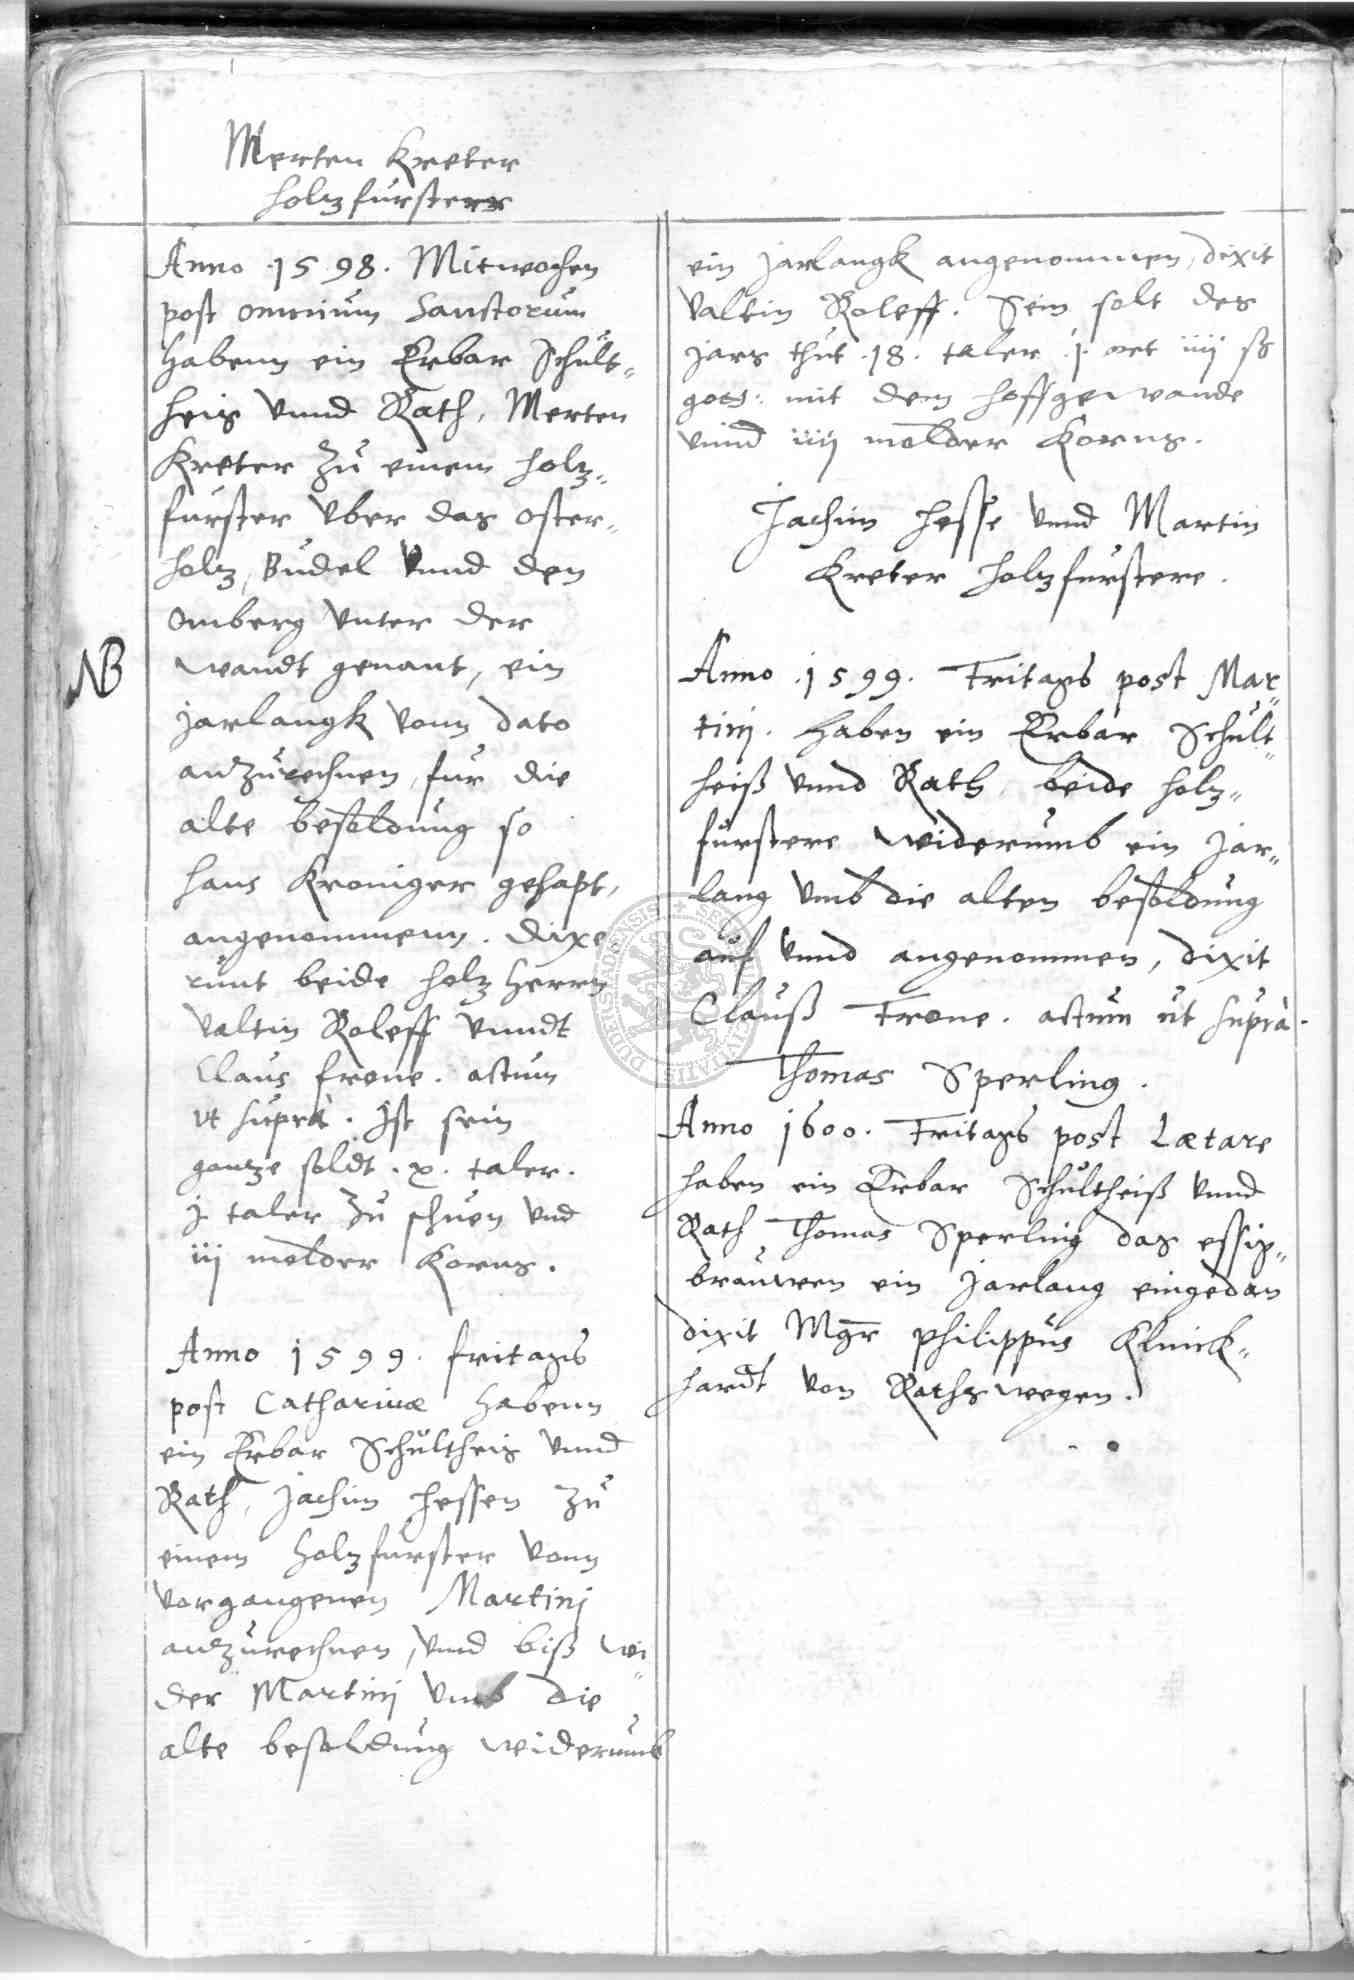 Merten Kreter
holzfurster
Anno .1598. Mitwochen
post omnium Sanctorum
Habenn ein Erbar Schult„
heis vnnd Rath, Merten
Kreter zu einem holtz„
furster vber das oster„
holtz, Budel vnnd den
Omberg vnter der
NB
wandt genant, ein
jarlangk vonn dato
anzurechnen, fur die
alte besoldung so
Hans Kroniger gehapt,
angenommenn. dixe
runt beide holtz Herrn
Valtin Roleff vnndt
Claus frone. actum
vt supra. Ist sein
gantze soldt .x. taler.
j taler zu schuen vnd
iij molder Korns.
Anno 1599. fritags
post Catharinæ habenn
ein Erbar Schultheis vnnd
Rath, Jachim Hessen zu
einem Holtzfurster vonn
vorgangenen Martinj
anzurechnen, vnnd biß wi„
der Martinj vmb die
alte besoldung widerumb
ein jarlangk angenommen, dixit
Valtin Roleff. Sein solt des
jars thut .18. taler .j. ort iiij ß
goss: mit dem hoffgewande
vnnd iiij molder Korns.
Jachim Hesse vnnd Martin
Kreter Holtzfurstere.
Anno .1599. Fritags post Mar„
tinj. Haben ein Erbar Schult„
heiß vnnd Rath beide holtz„
furstere widerumb ein jar„
lang vmb die alten besoldung
auf vnnd angenommen, dixit
Clauß Frone. actum ut supra.
Thomas Sperling.
Anno 1600. Fritags post Lætare
haben ein Erbar Schultheiß vnnd
Rath Thomas Sperling das essig„
brauwen ein Jarlang eingedan
dixit Mgr Philippus Klinck„
hardt von Raths wegen.